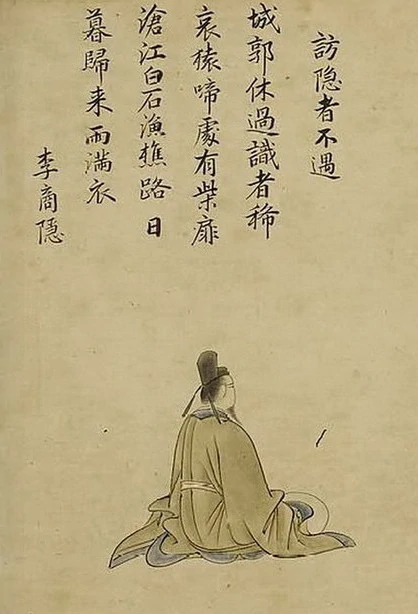 訪隐者不遇
城郭休過識者稀
哀猿啼處有柴扉
滄江白石漁樵路日
暮歸来雨滿衣
李商隱